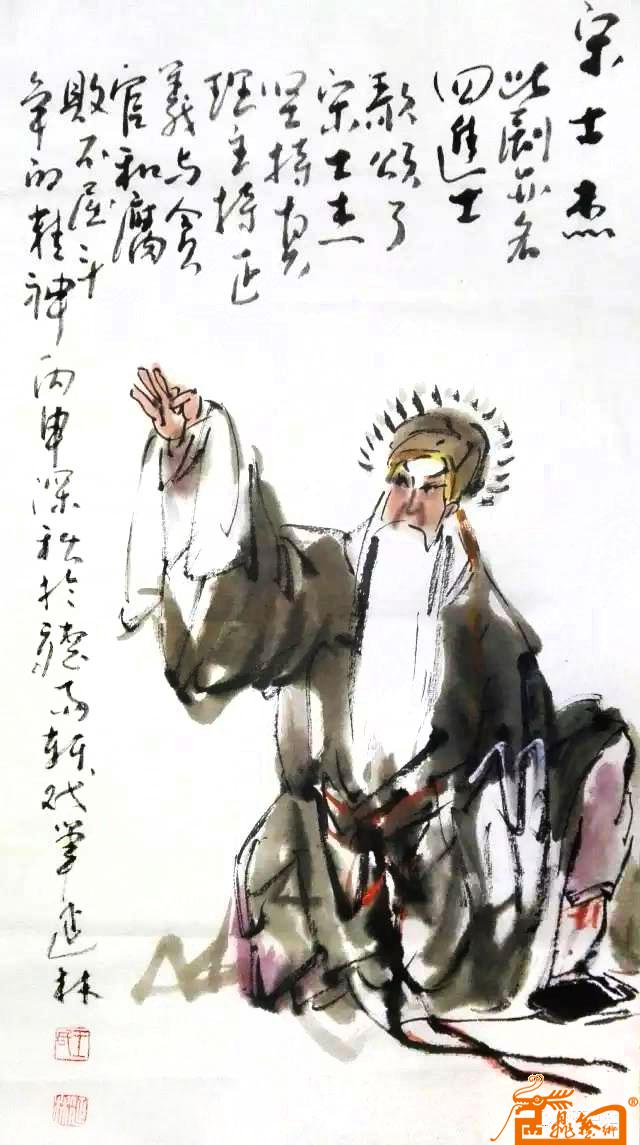 宋士杰
此剧亦名
四進士
歌颂了
宋士杰
坚持真
理主持正
義与贪
官和腐
败不屈斗
争的精神 丙申深秋於聽雨轩戏筆 進林